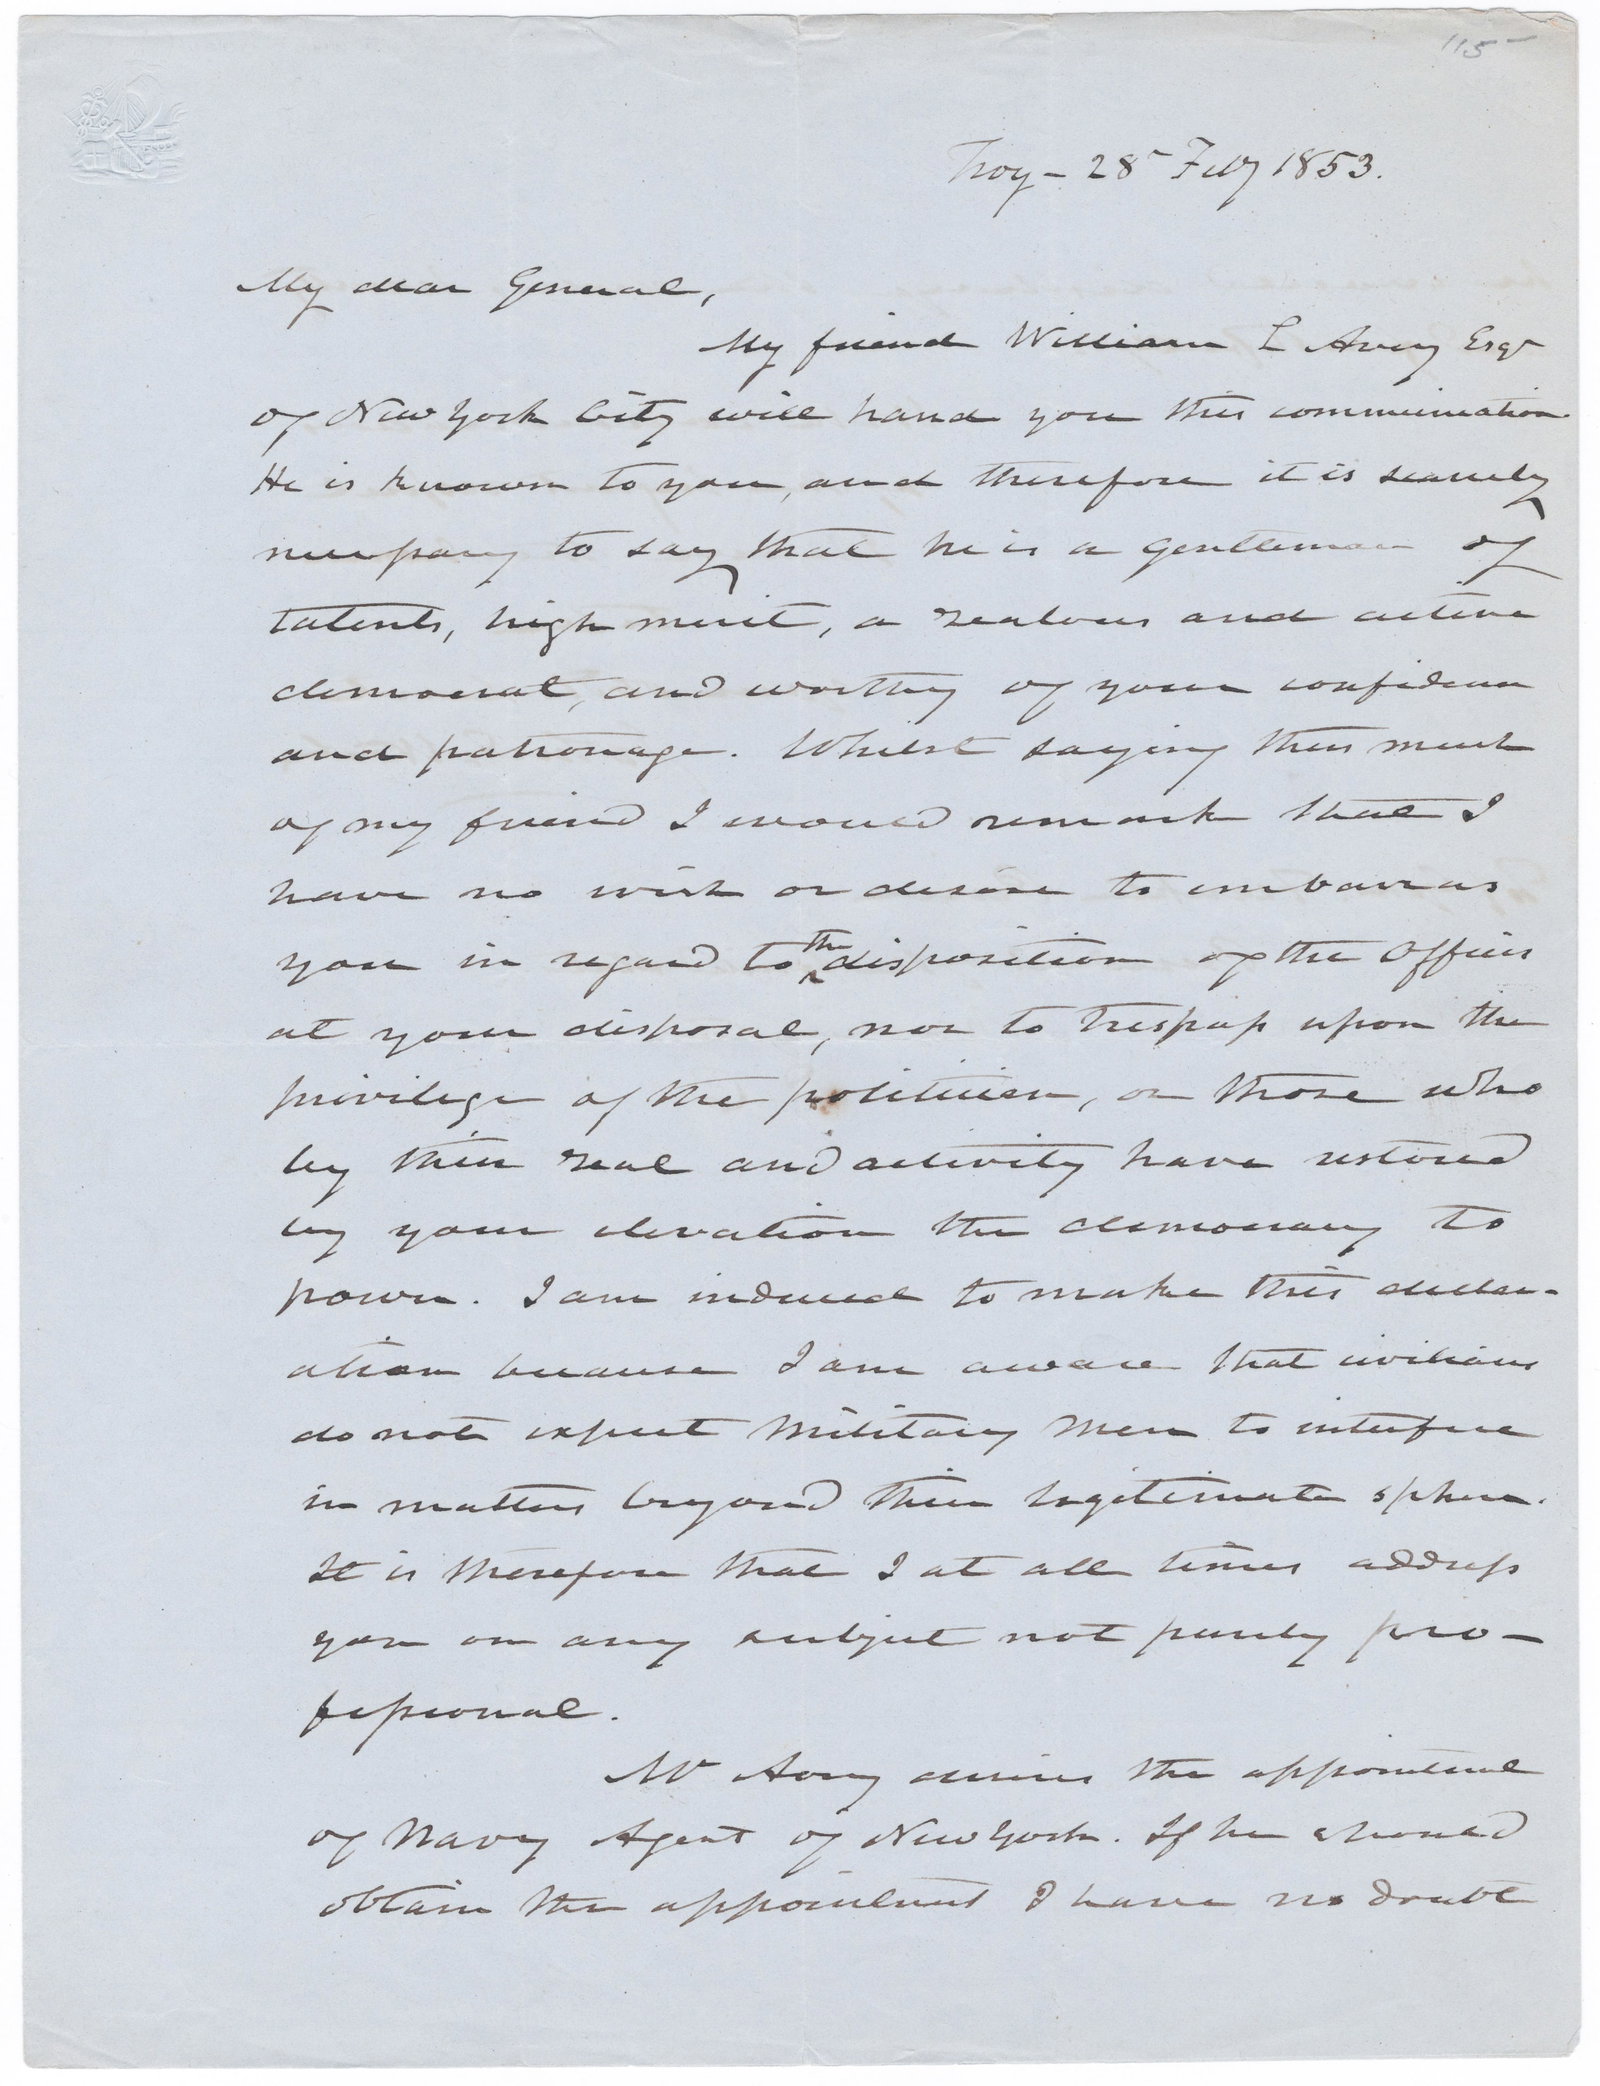 115-
Troy - 28 Feby 1853.
My dear General,
My friend William L Avery Esqr
of New York City will hand you this communication.
He is known to you, and therefore it is scarcely
necessary to say that he is a gentleman of
talents, high merit, a zealous and active
democrat, and worthy of your confidence
and patronage. Whilst saying thus much
of my friend I would remark that I
have no wish or desire to embarras
you in regard to the disposition of the Offices
at your disposal, nor to trespass upon the
privilege of the politician, or those who
by their zeal and activity have restored
by your elevation the democracy to
power. I am induced to make this declar-
ation because I am aware that civilians
do not expect Military Men to interfere
in matters beyond their legitimate sphere.
It is therefore that I at all times address
you on any subject not purely pro-
fessional.
Mr Avery desires the appointment
of Navy Agent of New York. If he should
obtain the appointment I have no doubt